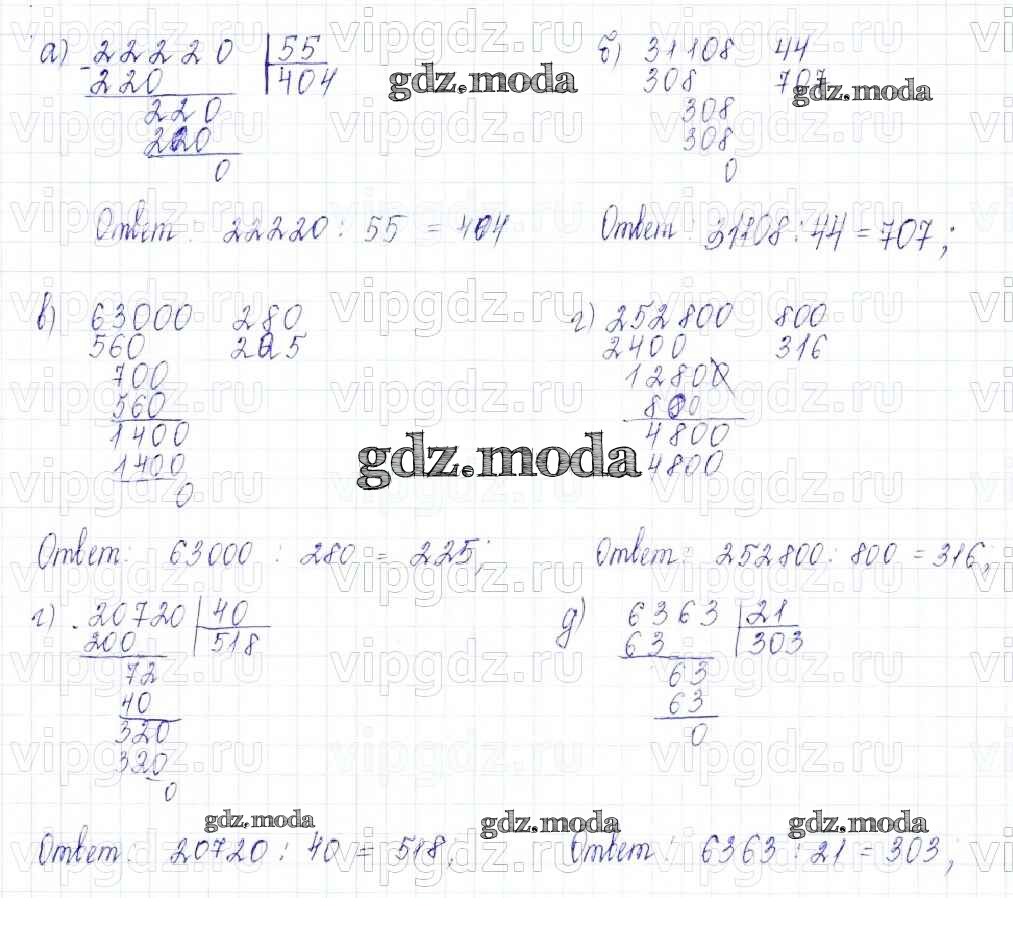 а) 22220 55
220 404
220
220
0
Ответ: 22220 : 55 = 404
б) 31108 44
308 707
308
308
0
Ответ: 31108 : 44 = 707;
в) 63000 280
560 225
700
560
1400
1400
0
Ответ: 63000 : 280 = 225;
г) 252800 800
2400 316
12800
800
4800
4800
Ответ: 252800 : 800 = 316;
г) 20720 40
200 518
72
40
320
320
0
Ответ: 20720 : 40 = 518;
д) 6363 21
63 303
63
63
0
Ответ: 6363 : 21 = 303;
gdz.moda
gdz.moda
gdz.moda
gdz.moda
gdz.moda
gdz.moda
vipgdz.ru